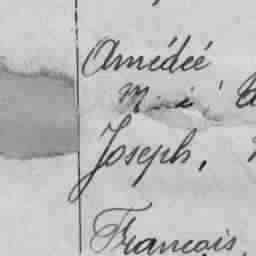 Amédée
Joseph,
François,